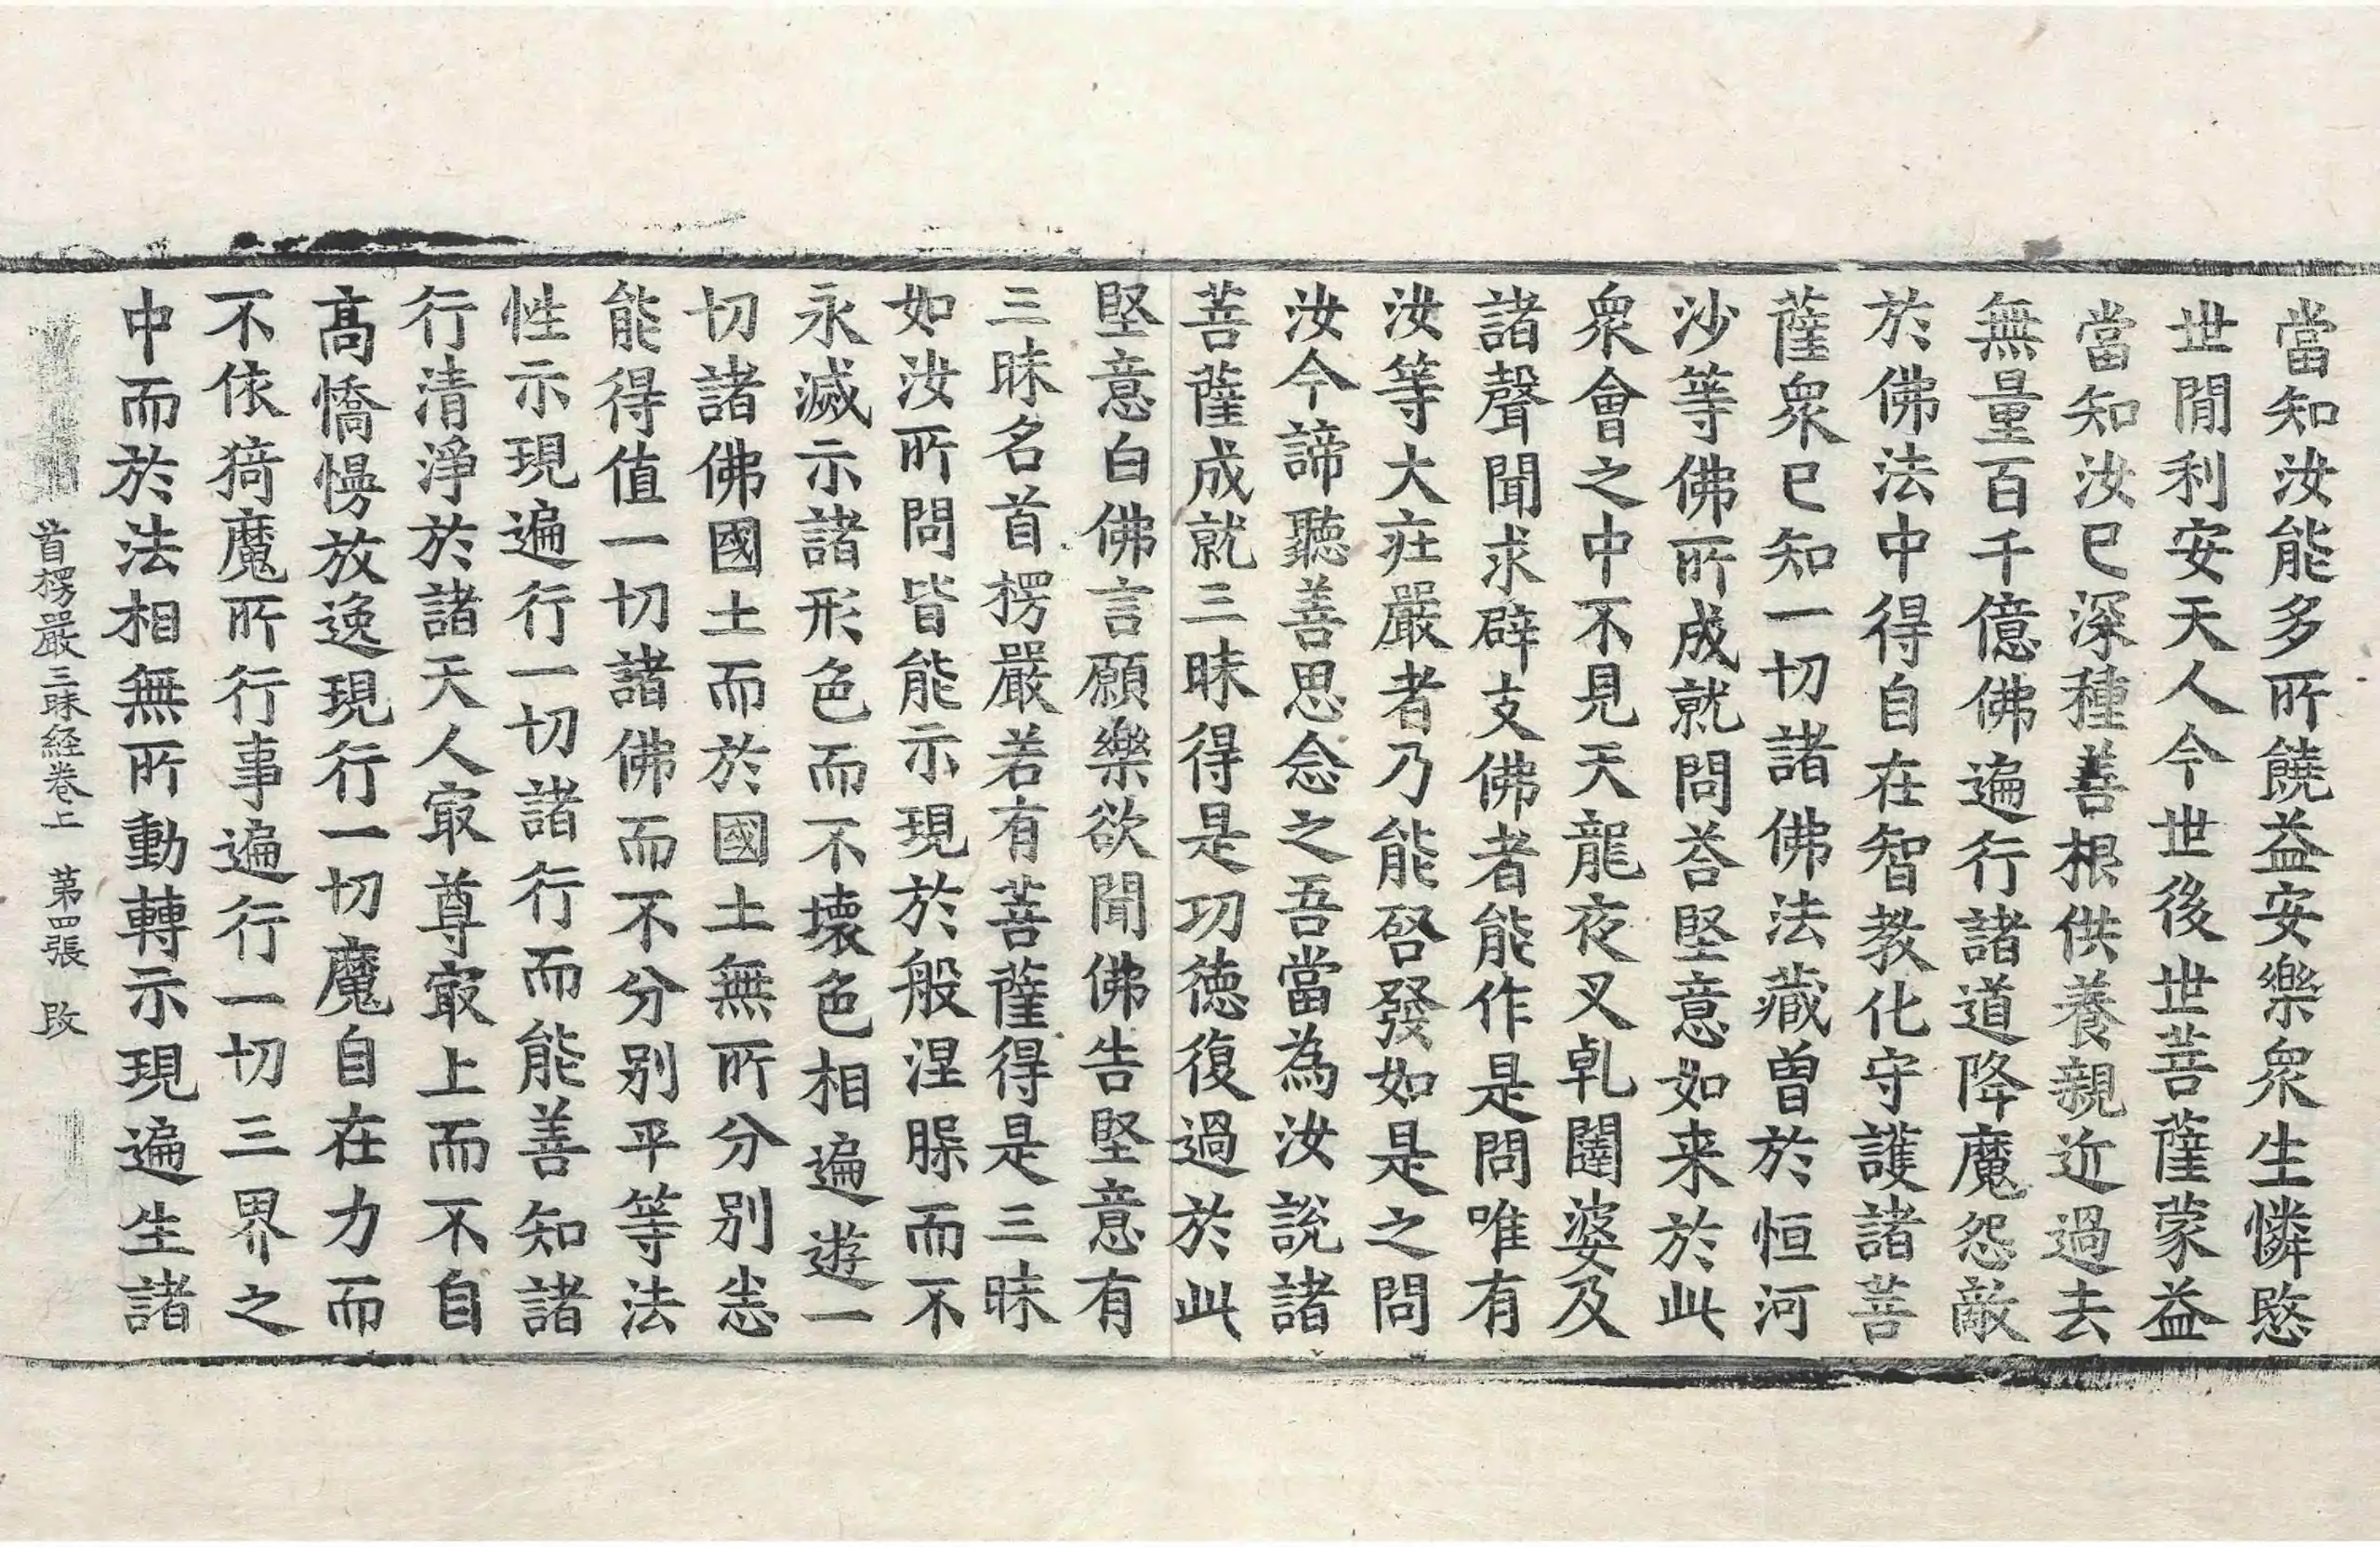 當知汝能多所饒益安樂衆生憐愍
世閒利安天人今世後世菩薩蒙益
當知汝已深種善根供養親近過去
無量百千億佛遍行諸道降魔怨敵
於佛法中得自在智教化守護諸菩
薩衆已知一切諸佛法藏曾於恒河
沙等佛所成就問荅堅意如来於此
衆會之中不見天龍夜叉乹闥婆及
諸聲聞求辟支佛者能作是問唯有
汝等大疘嚴者乃能啓發如是之問
汝今諦聽善思念之吾當為汝說諸
菩薩成就三昧得是功徳復過於此
堅意白佛言願樂欲聞佛告堅意有
三昧名首楞嚴若有菩薩得是三昧
如汝所問皆能示現於般涅槃而不
永滅示諸形色而不壞色相遍遊一
切諸佛國土而於國土無所分別悉
能得值一切諸佛而不分別平等法
性示現遍行一切諸行而能善知諸
行清淨於諸天人㝡尊㝡上而不自
髙憍慢放逸現行一切魔自在力而
不依猗魔所行事遍行一切三界之
中而於法相無所動轉示現遍生諸
首楞嚴三昧経卷上　第四張　改